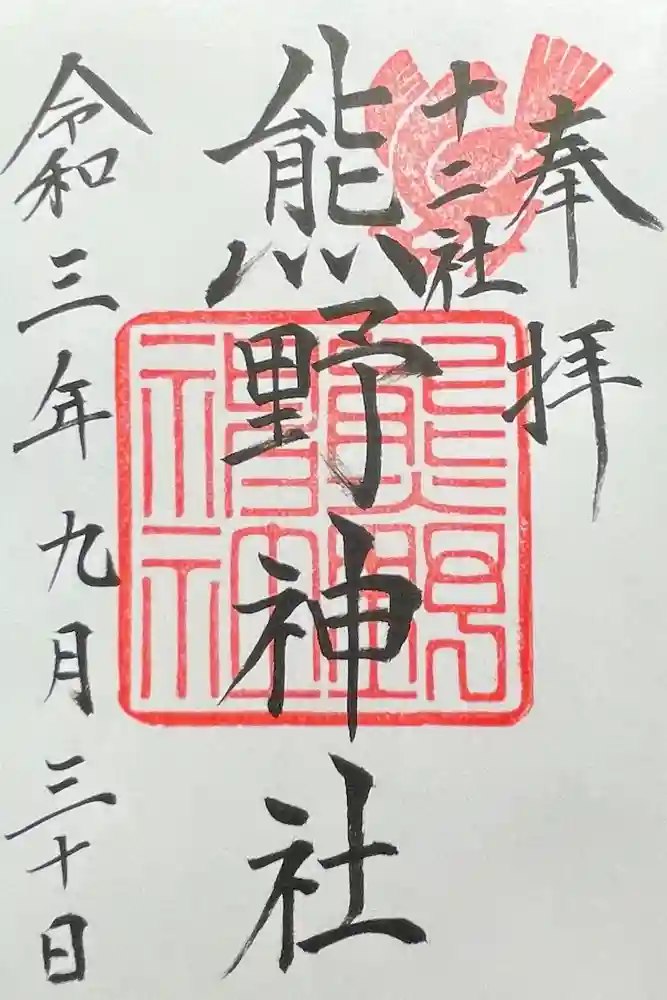 奉拝
十二社
熊野神社
令和三年九月三十日